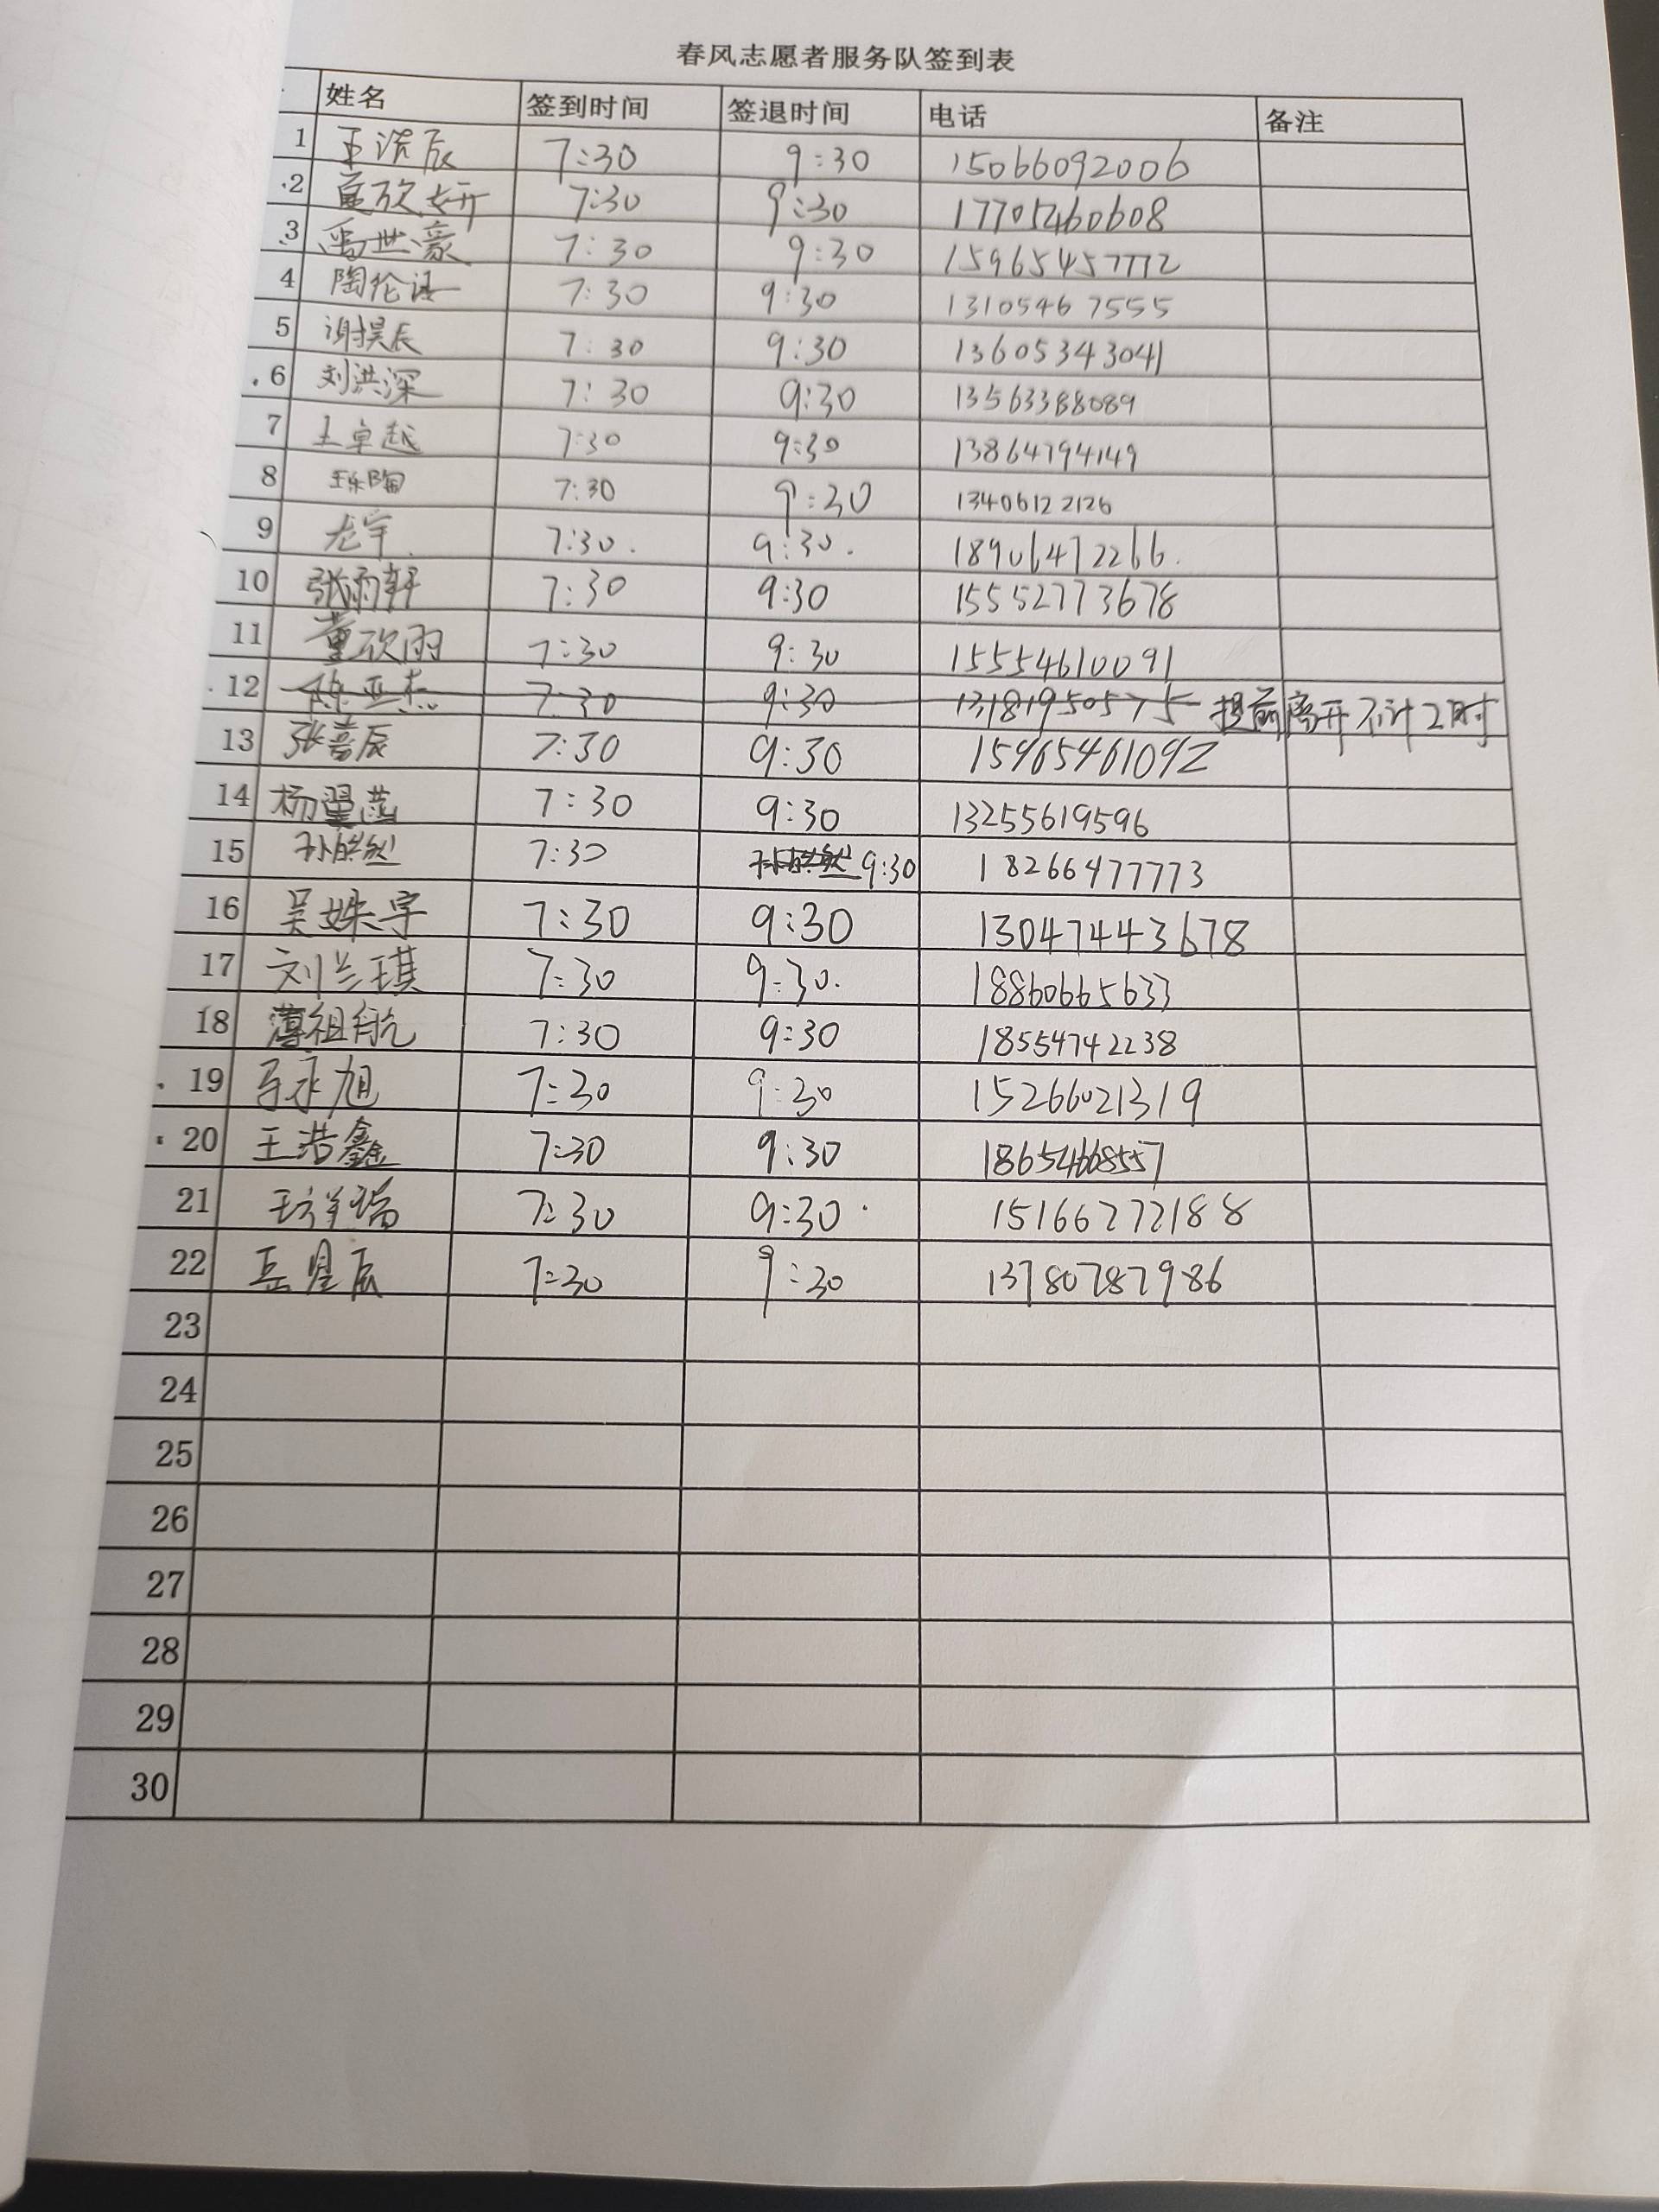 春风志愿者服务队签到表
姓名 签到时间 签退时间 电话 备注
1 王浩辰 7:30 9:30 15066092006
2 董欣妍 7:30 9:30 17705460608
3 禹世豪 7:30 9:30 15965457772
4 陶伦语 7:30 9:30 13105467555
5 谢昊辰 7:30 9:30 13605343041
6 刘洪深 7:30 9:30 13563388089
7 王卓越 7:30 9:30 13864794149
8 王乐陶 7:30 9:30 13406122126
9 龙宇 7:30. 9:30. 18906472266.
10 张雨轩 7:30 9:30 15552773678
11 董欣雨 7:30 9:30 15554610091
12 陈亚杰 7:30 9:30 13181950575 提前离开不计2时
13 张喜辰 7:30 9:30 15965461092
14 杨翌菡 7:30 9:30 13255619596
15 7:30 9:30 18266477773
16 吴姝宇 7:30 9:30 13047443678
17 刘兰琪 7:30 9:30. 18860665633
18 薄祖航 7:30 9:30 18554742238
19 马永旭 7:30 9:30 15266021319
20 王浩鑫 7:30 9:30 18654668557
21 7:30 9:30 15166272188
22 岳星辰 7:30 9:30 13780787986
23
24
25
26
27
28
29
30